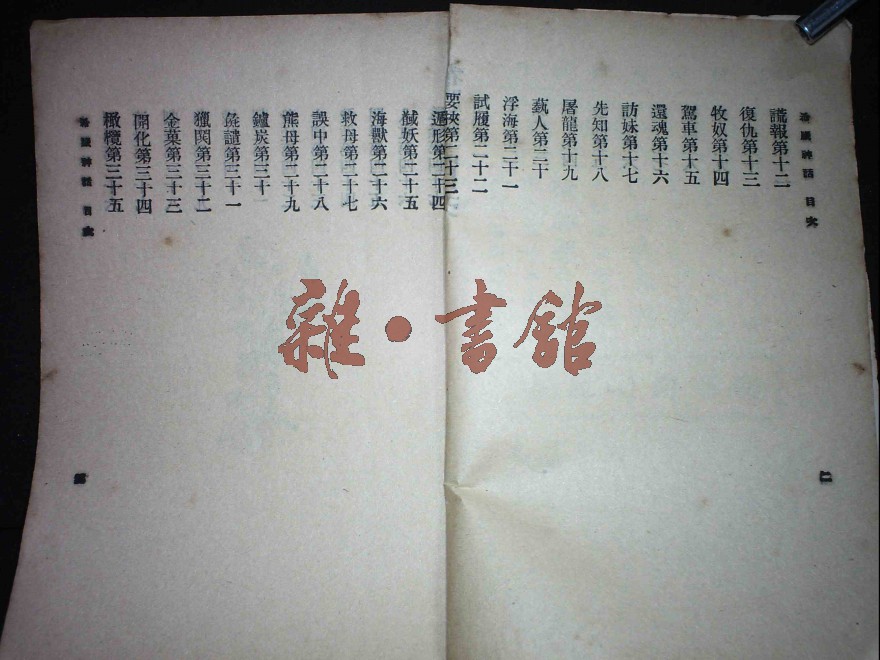 洛國神話 目次
謊報第十二
復仇第十三
牧奴第十四
駕車第十五
還魂第十六
訪妹第十七
先知第十八
屠龍第十九
蓺人第二十
浮海第二十一
試履第二十二
要挾第二十三
遁形第二十四
馘妖第二十五
海獸第二十六
救母第二十七
誤中第二十八
熊母第二十九
鑪炭第三十
彘譴第三十一
獵鬩第三十二
金菓第三十三
開化第三十四
橄欖第三十五
洛國神話 目次
二
雜·書館